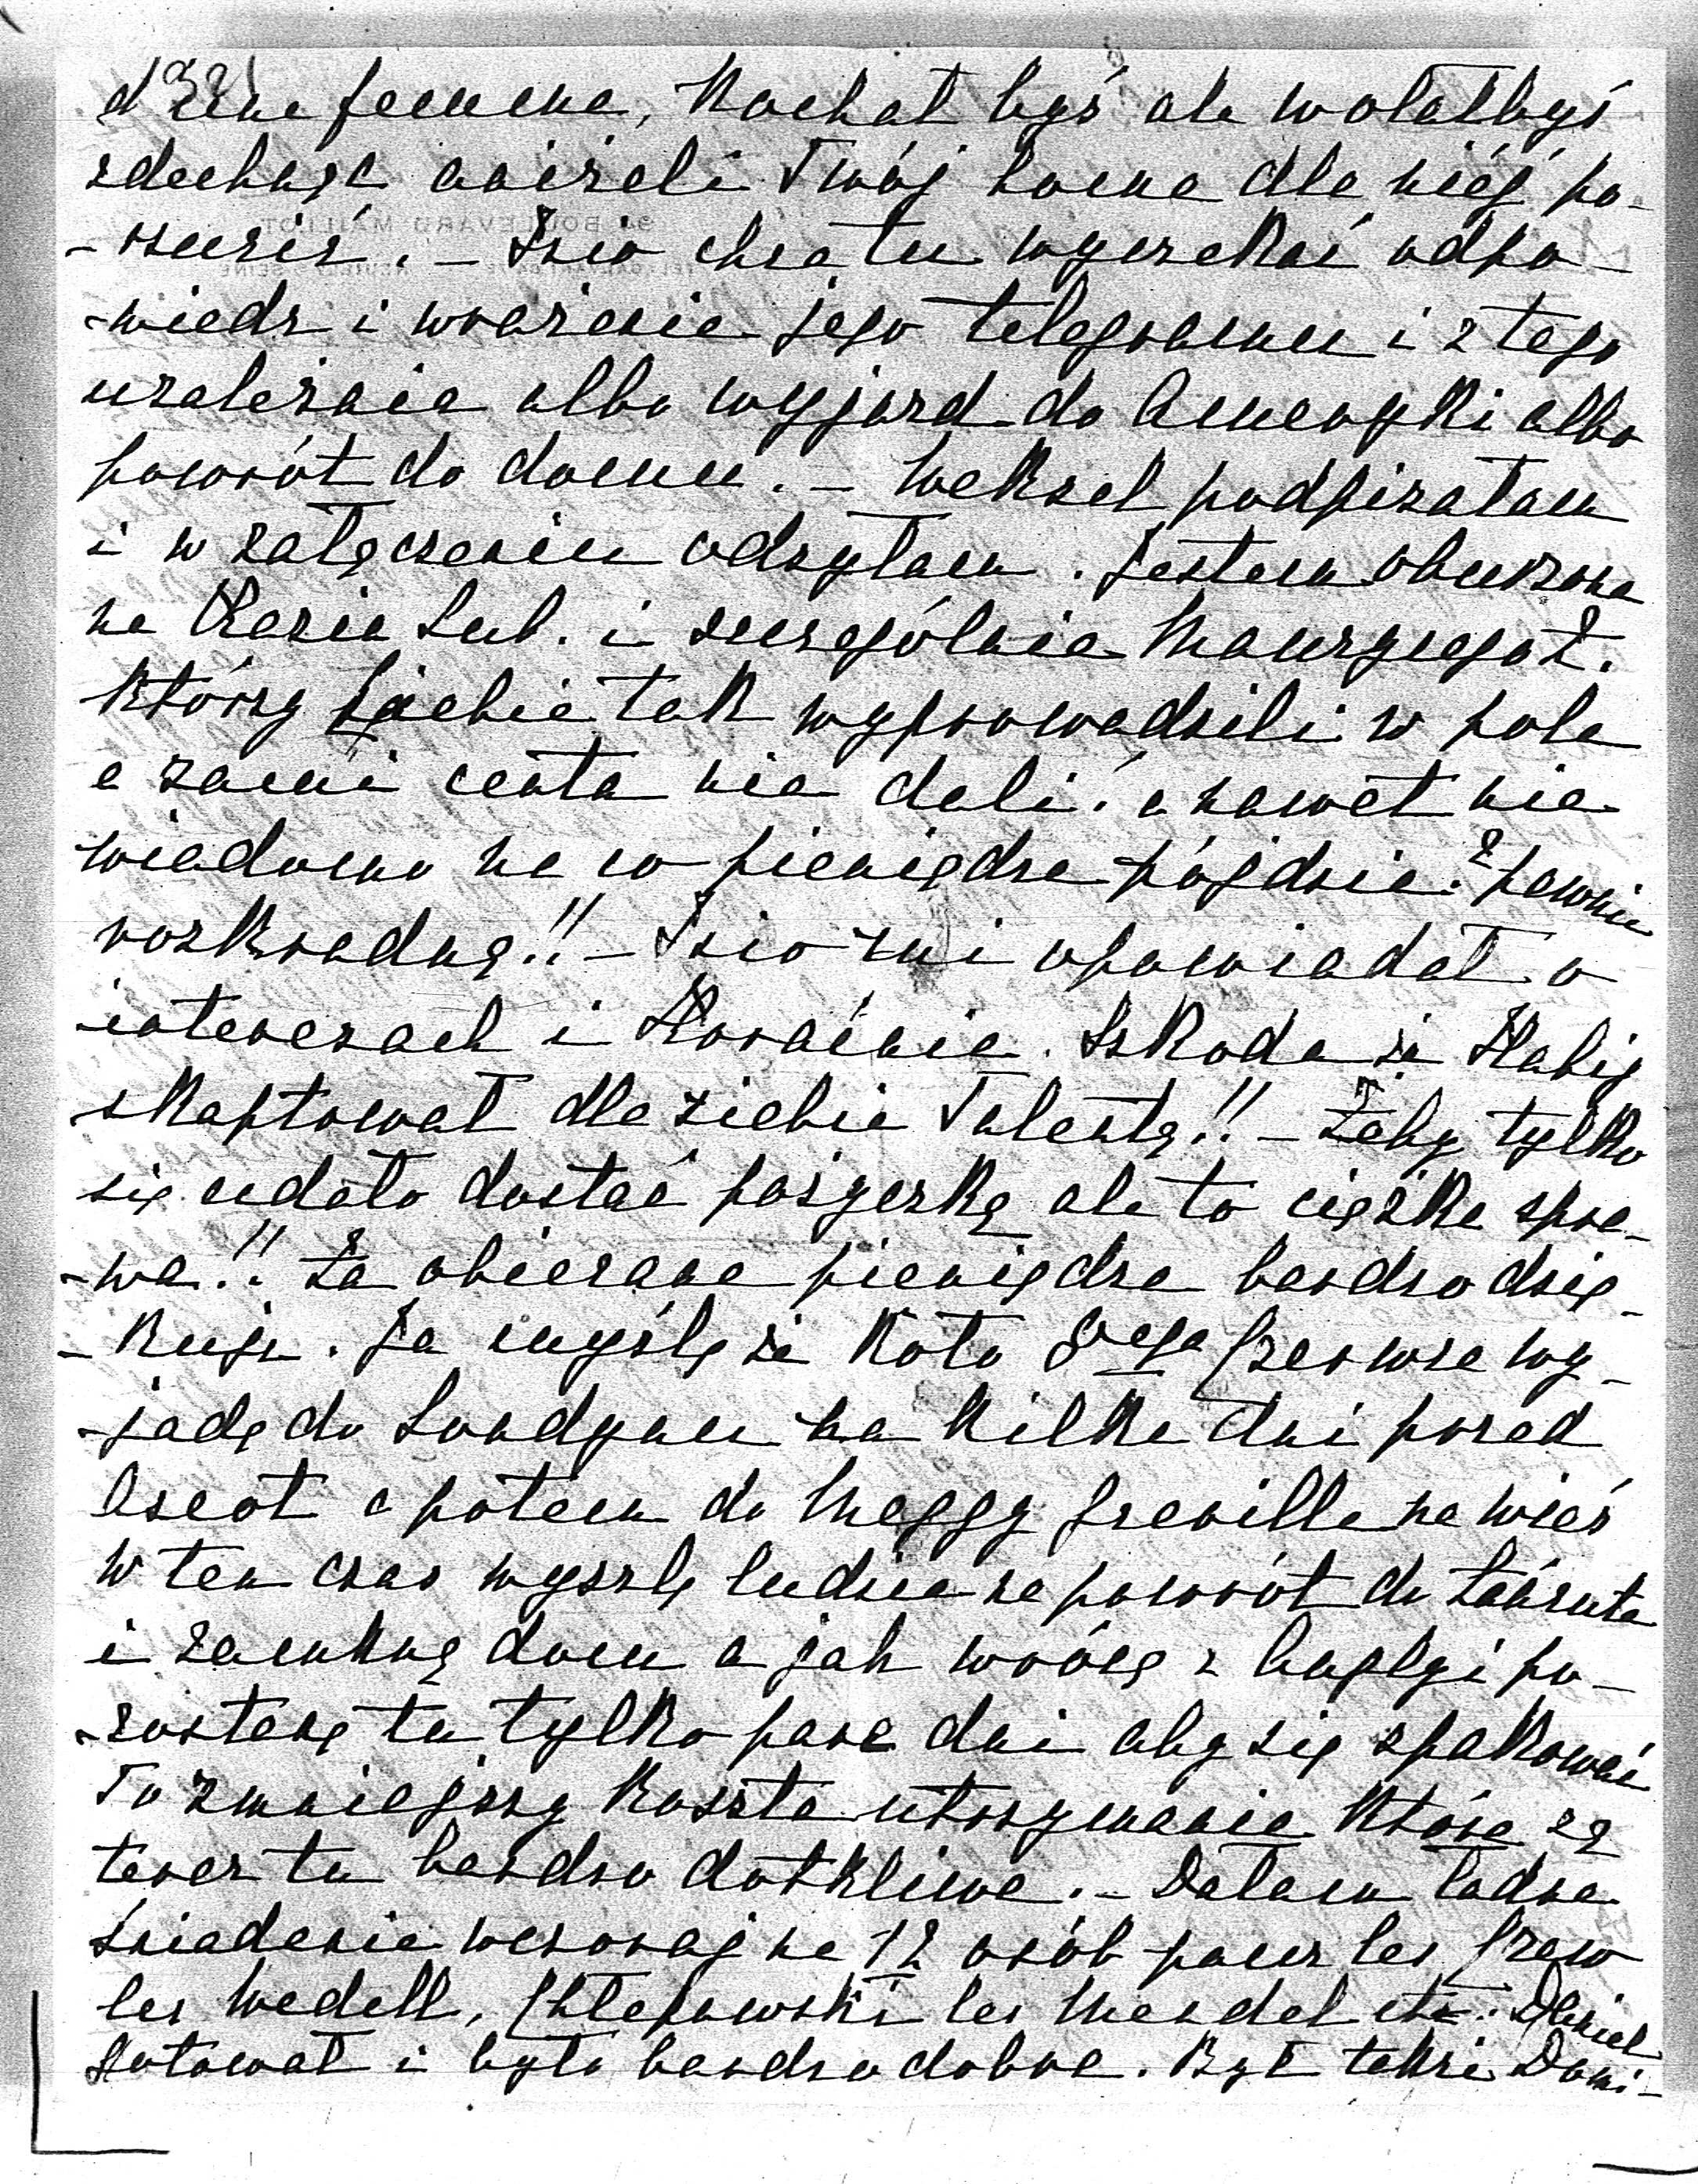 d'une femme, Kochał byś ale wolałbyś
zdechnąć aniżeli Twój home dla niéj po-
-rzucić. – Isio chce tu wyczekać odpo-
-wiedz i wrażenie jego telegramu i z tego
uzależnia albo wyjazd do Ameryki albo
powrót do domu. – Weksel podpisałam
i w załączeniu odsyłam. Jestem oburzona
na Kazia Lub. i szczególnie Maurycego Z.
którzy Ciebie tak wyprowadzili w pole
a sami centa nie dali! a nawet nie
wiadomo na co pieniądze pójdzie? pewnie
rozkradną!! – Isio mi opowiadał o
interesach i Koracinie. Szkoda że Habig
skaptował dla siebie Talentę!! – Żeby tylko
się udało dostać pożyczkę ale to ciężka spra-
-wa!! Za obiecane pieniądze bardzo dzię-
-kuję. Ja myślę że koło 8ego czerwca wy-
-jadę do Londynu na kilka dni przed
Ascot a potem do Meggy Greville na wieś
w ten czas wyszlę ludzie na powrót do Łańcuta
i zamknę dom a jak wrócę z Anglyi po-
-zostanę tu tylko parę dni aby się spakować
To zmniejszy koszta utrzymania które są
teraz tu bardzo dotkliwe. – Dałam ładne
śniadanie wczoraj na 12 osób pour les
les Wedell, Chłapowski les Mendel etc. Daniel
gotował i było bardzo dobre. Był także Domi-